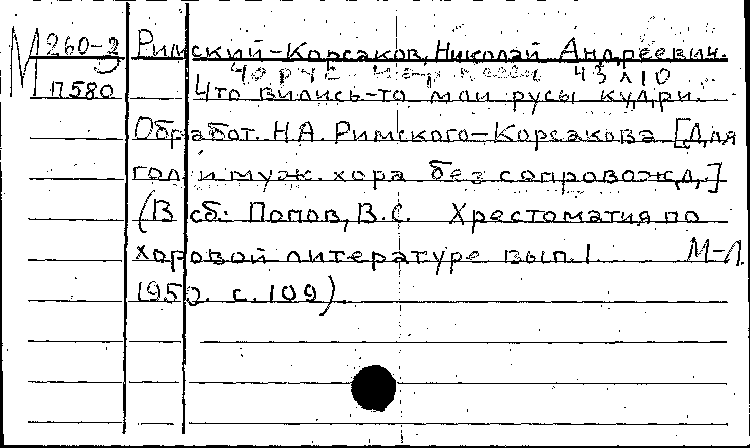 М 260-3 Римский-Корсаков, Николай Андреевич.
40 рус. нар. песен 43 л 10
П580 Что вились-то мои русы кудри.
Обработ. Н.А. Римского-Корсакова [Для
гол. и муж. хора без сопровожд.]
(В сб: Попов, В.С. Хрестоматия по
хоровой литературе вып. 1 М-Л.
1950. с. 109)